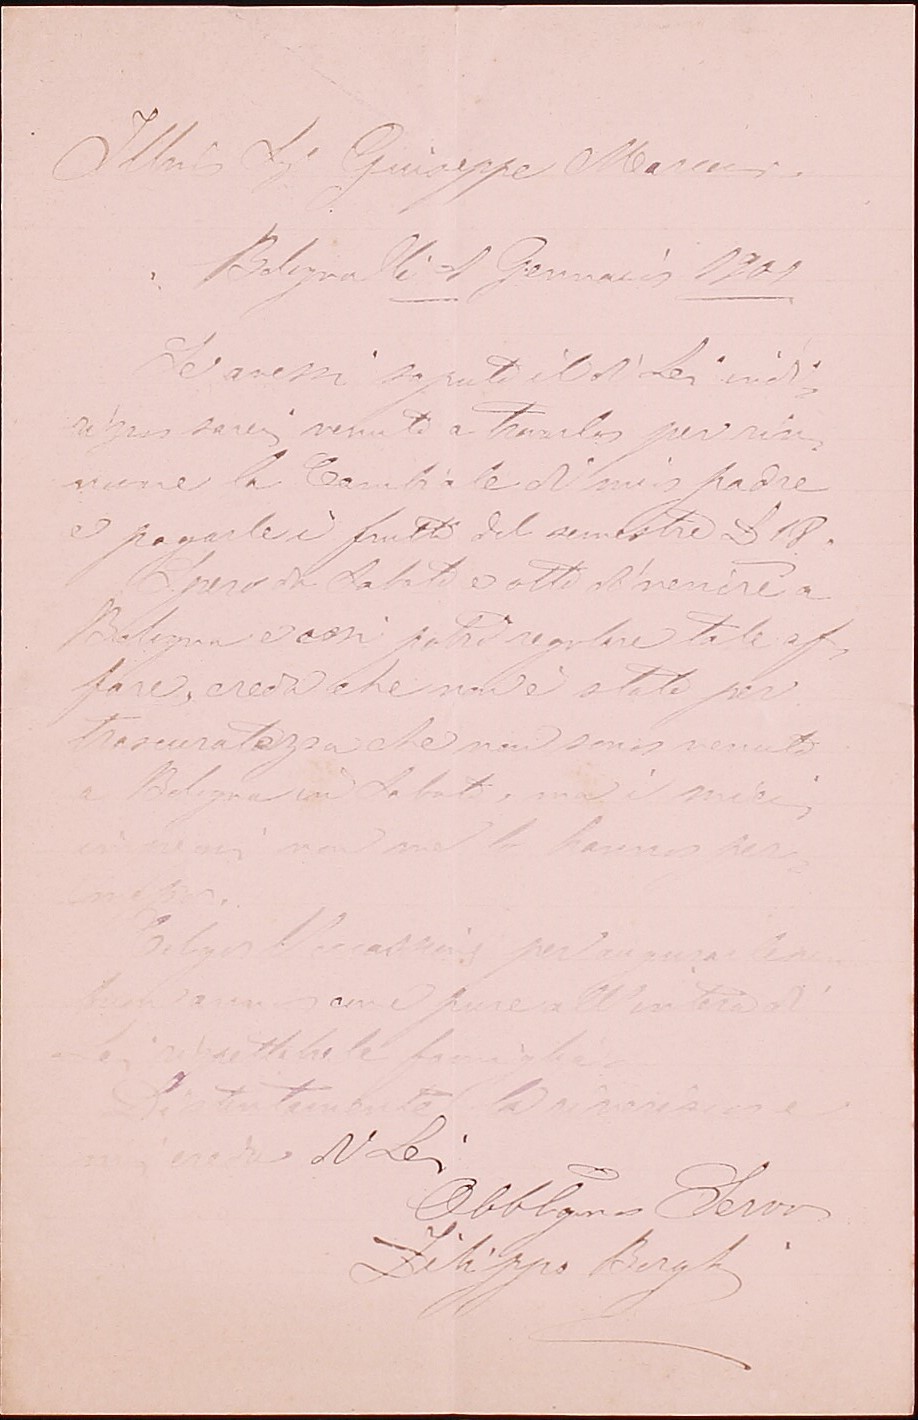 Illmo Sig. Giuseppe
Bologna li 1 Gennaio 1901
Se avessi saputo il di Lei indi-
rizzo sarei venuto a trovarlo per rin-
novare la Cambiale di mio padre
e pagarle i frutti del semestre L 18.
Spero da Sabato e otto di venire a
Bologna e così potrò regolare tale af-
fare, creda che non è stato per
trascuratezza che non sono venuto
a Bologna in Sabato, ma i miei
impegni non me lo hanno per-
messo.
Colgo l'occasione per augurarle
buon anno come pure all'intera di
Lei rispettabile famiglia.
Distintamente la riverisco e
mi creda di Lei
Obblgmo Servo
Filippo Borghi